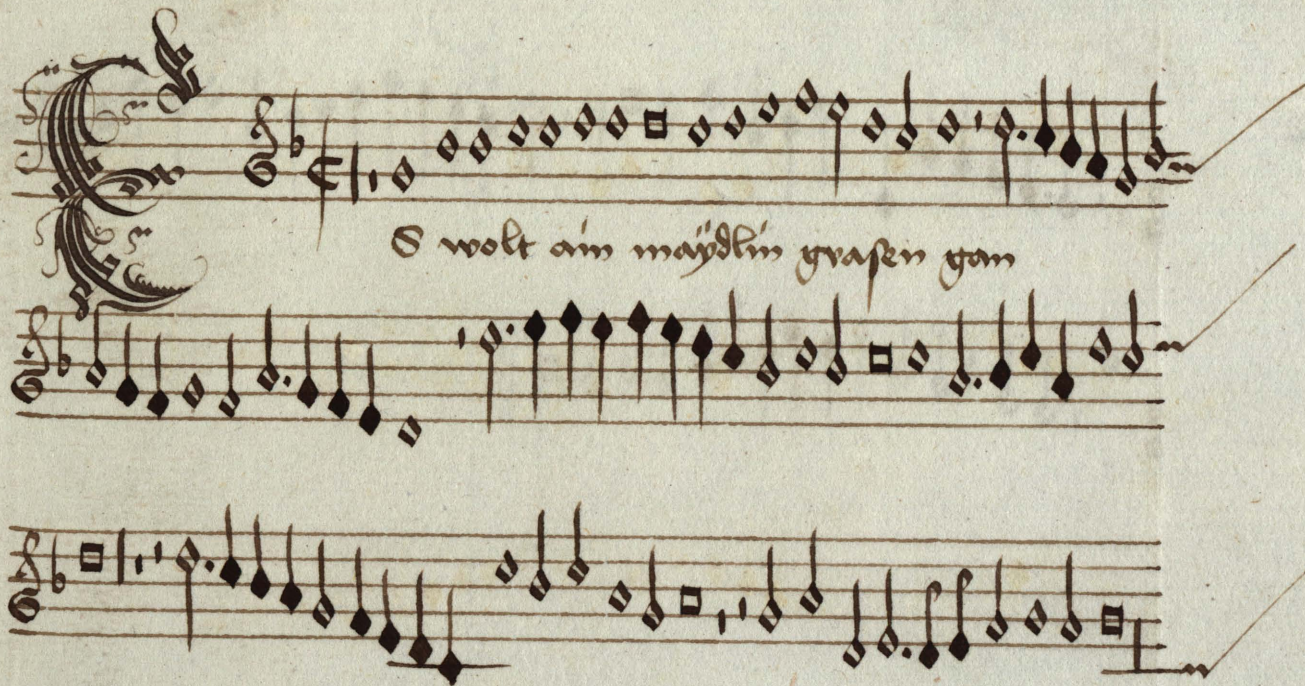 ES wolt ain maÿdlin grasen gan